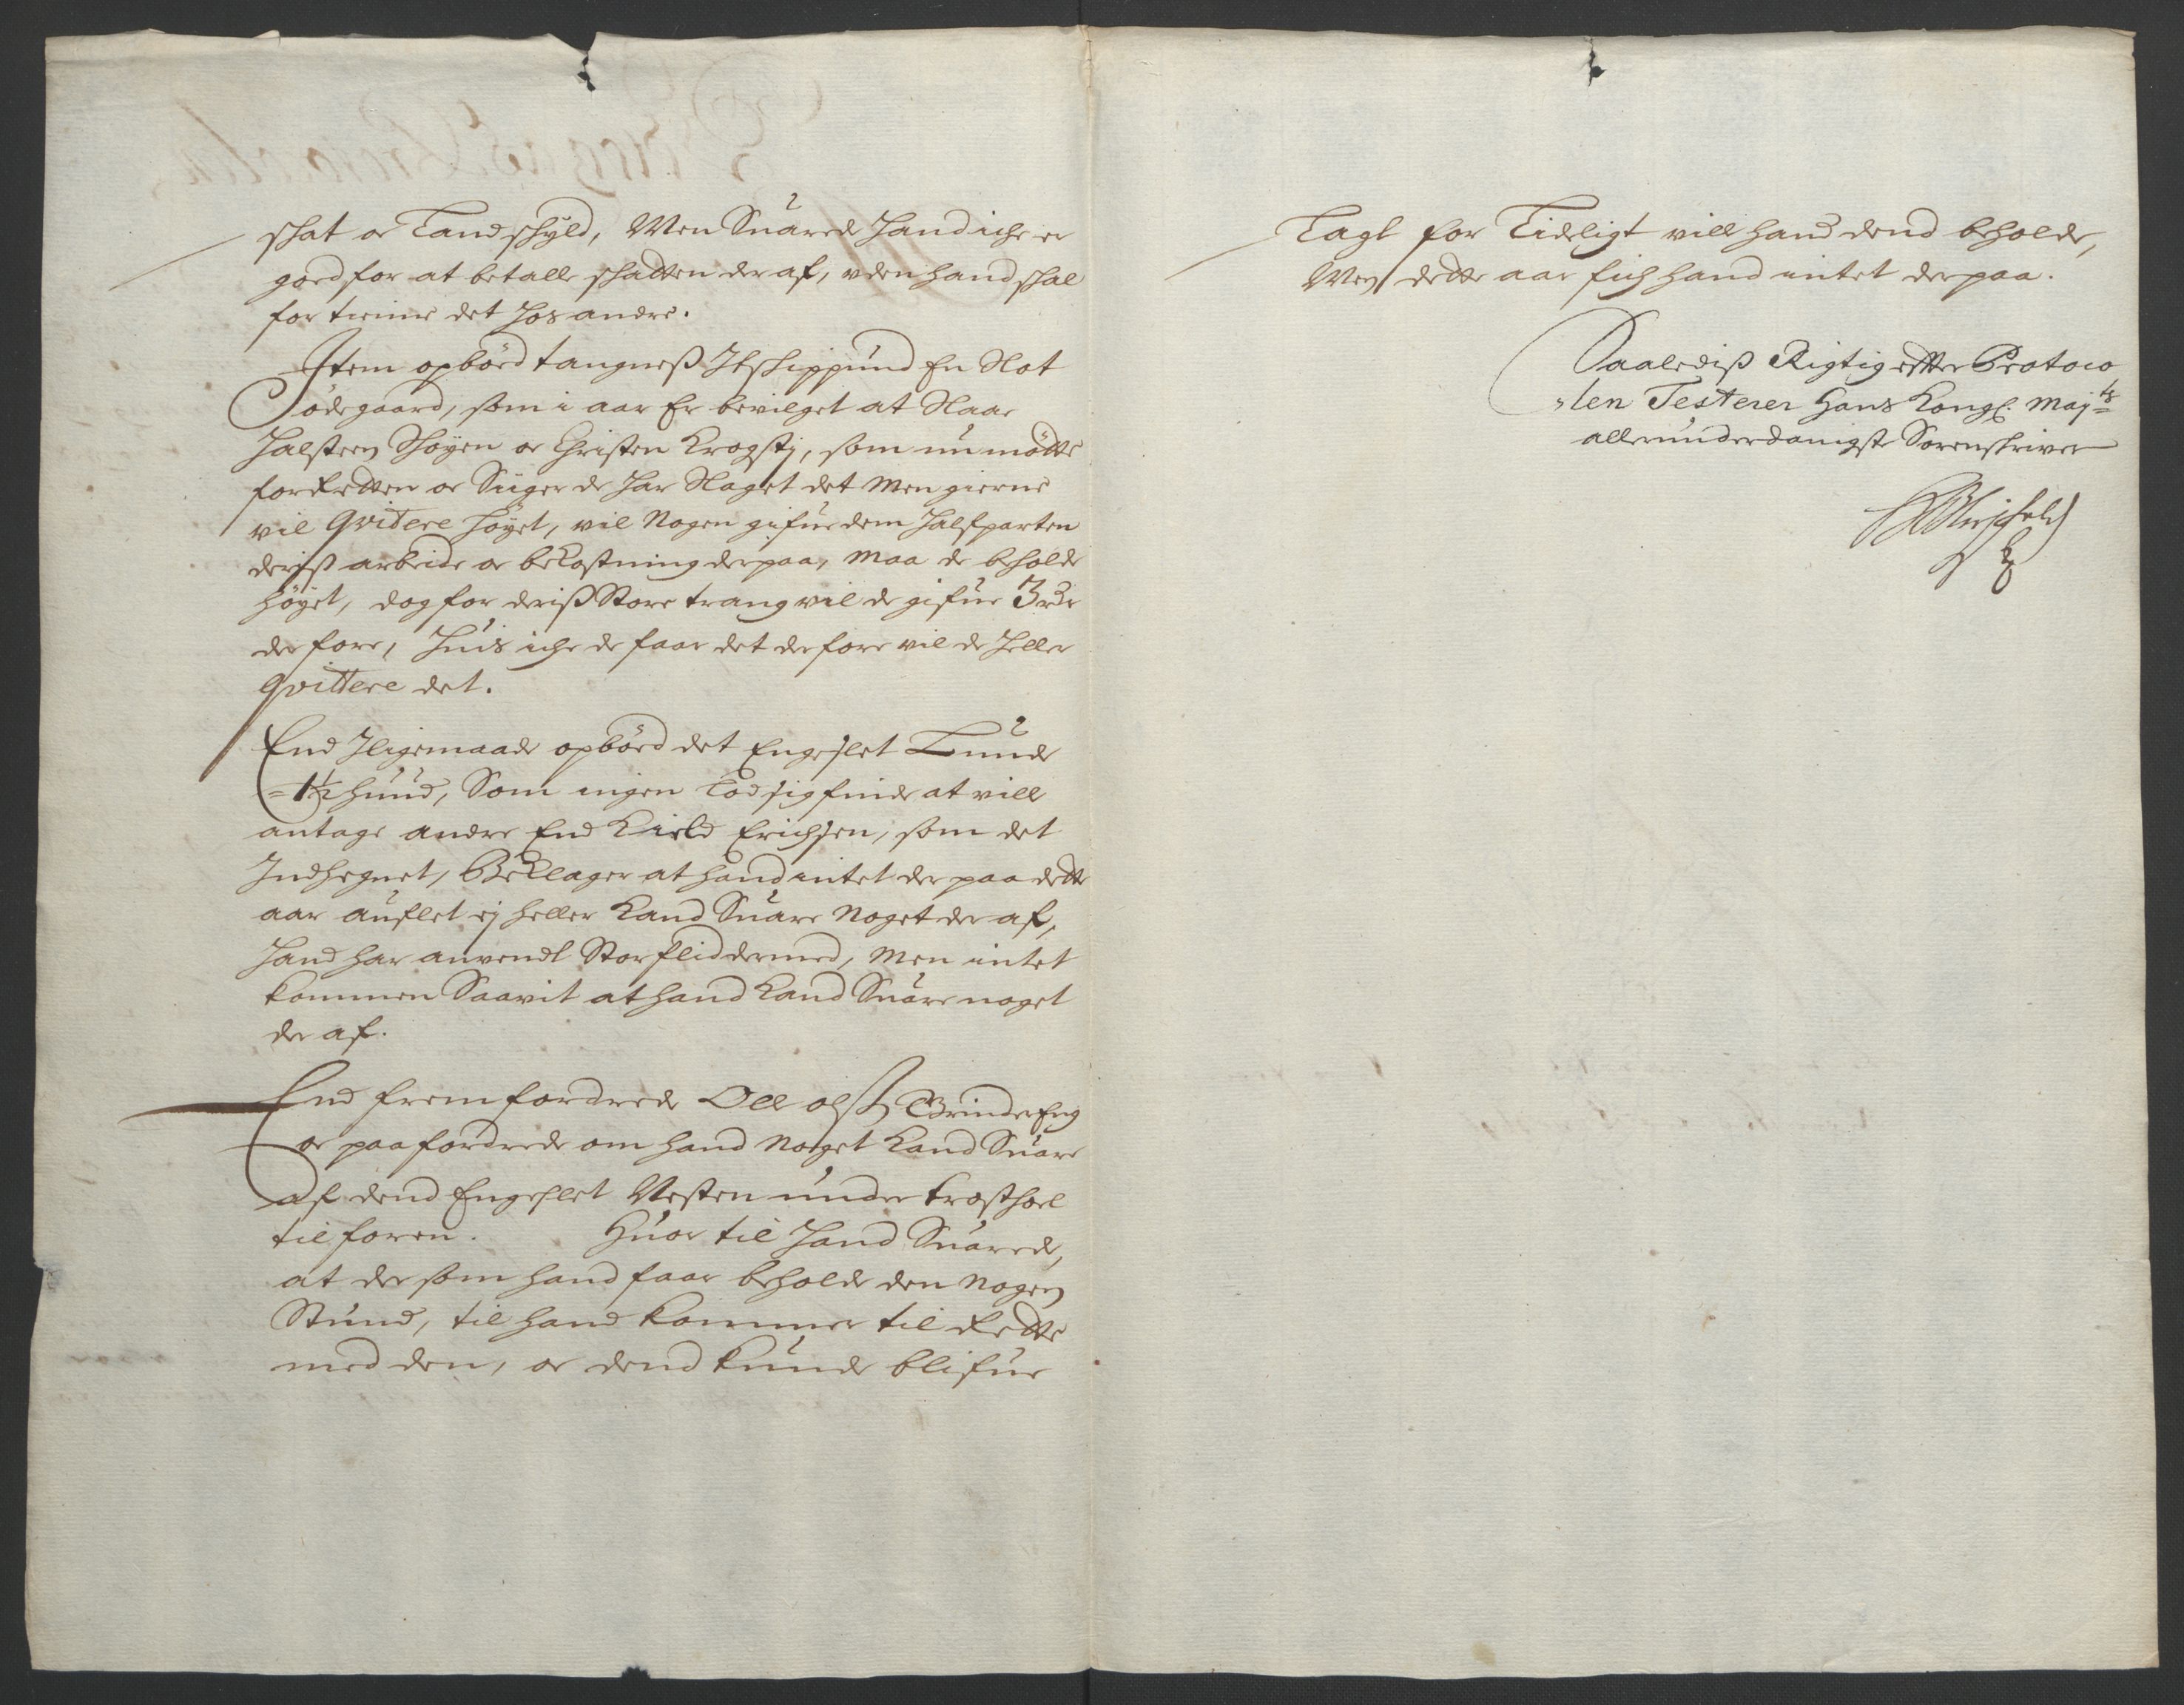 schat oc Landschyld, Men Suarede hand iche er
goed for at betalle schatten der af, uden hand schal
for tienne det hos andre.
Item opbød tangneß It schippund En Slot
Ødegaard, som i aar Er bevilget at Slaae
Halsteen Skøyen oc Christen Krogstj, som nu mødte
for Retten oc Siiger de har Slaget det Men gierne
vil Qvitere høyet, vil Nogen gifue dem Halfparten
deriß arbeide oc bekostning der paa, maa de beholde
høyet, dog for deriß Store trang vil de gifue 3 rdr
der fore, huis iche de faar det der fore vil de heller
Qvittere det.
End I ligemaade opbød det Engeslet Lunde
1½ huud, Som ingen Lod sig finde at ville
antage andre End Kield Erichsen, som det
Indhegnet, Beklager at hand intet der paa dette
aar auflet ej heller Kand Suare Noget der af,
hand har anvendt Stor flid dermed, Men intet
kommen Saavit at hand Kand Suare noget
der af.
End frem fordrede Ole olss Grinder Eng
oc paa fordrede om hand Noget Kand Suare
af dend Engeslet Nesten under
til foren. Huor til hand Suarede,
at der som hand faar beholde den Nogen
Stund, til hand kommer til Rette
med den, oc dend kunde blifue
Lagt for Lideligt vill hand dend beholde,
Men dette aar fich hand intet der paa.
Saalediß Rigtig efter Protoco
„len Testerer Hans Kongl. Maj ts
allerunderdanigste Sorenskriver